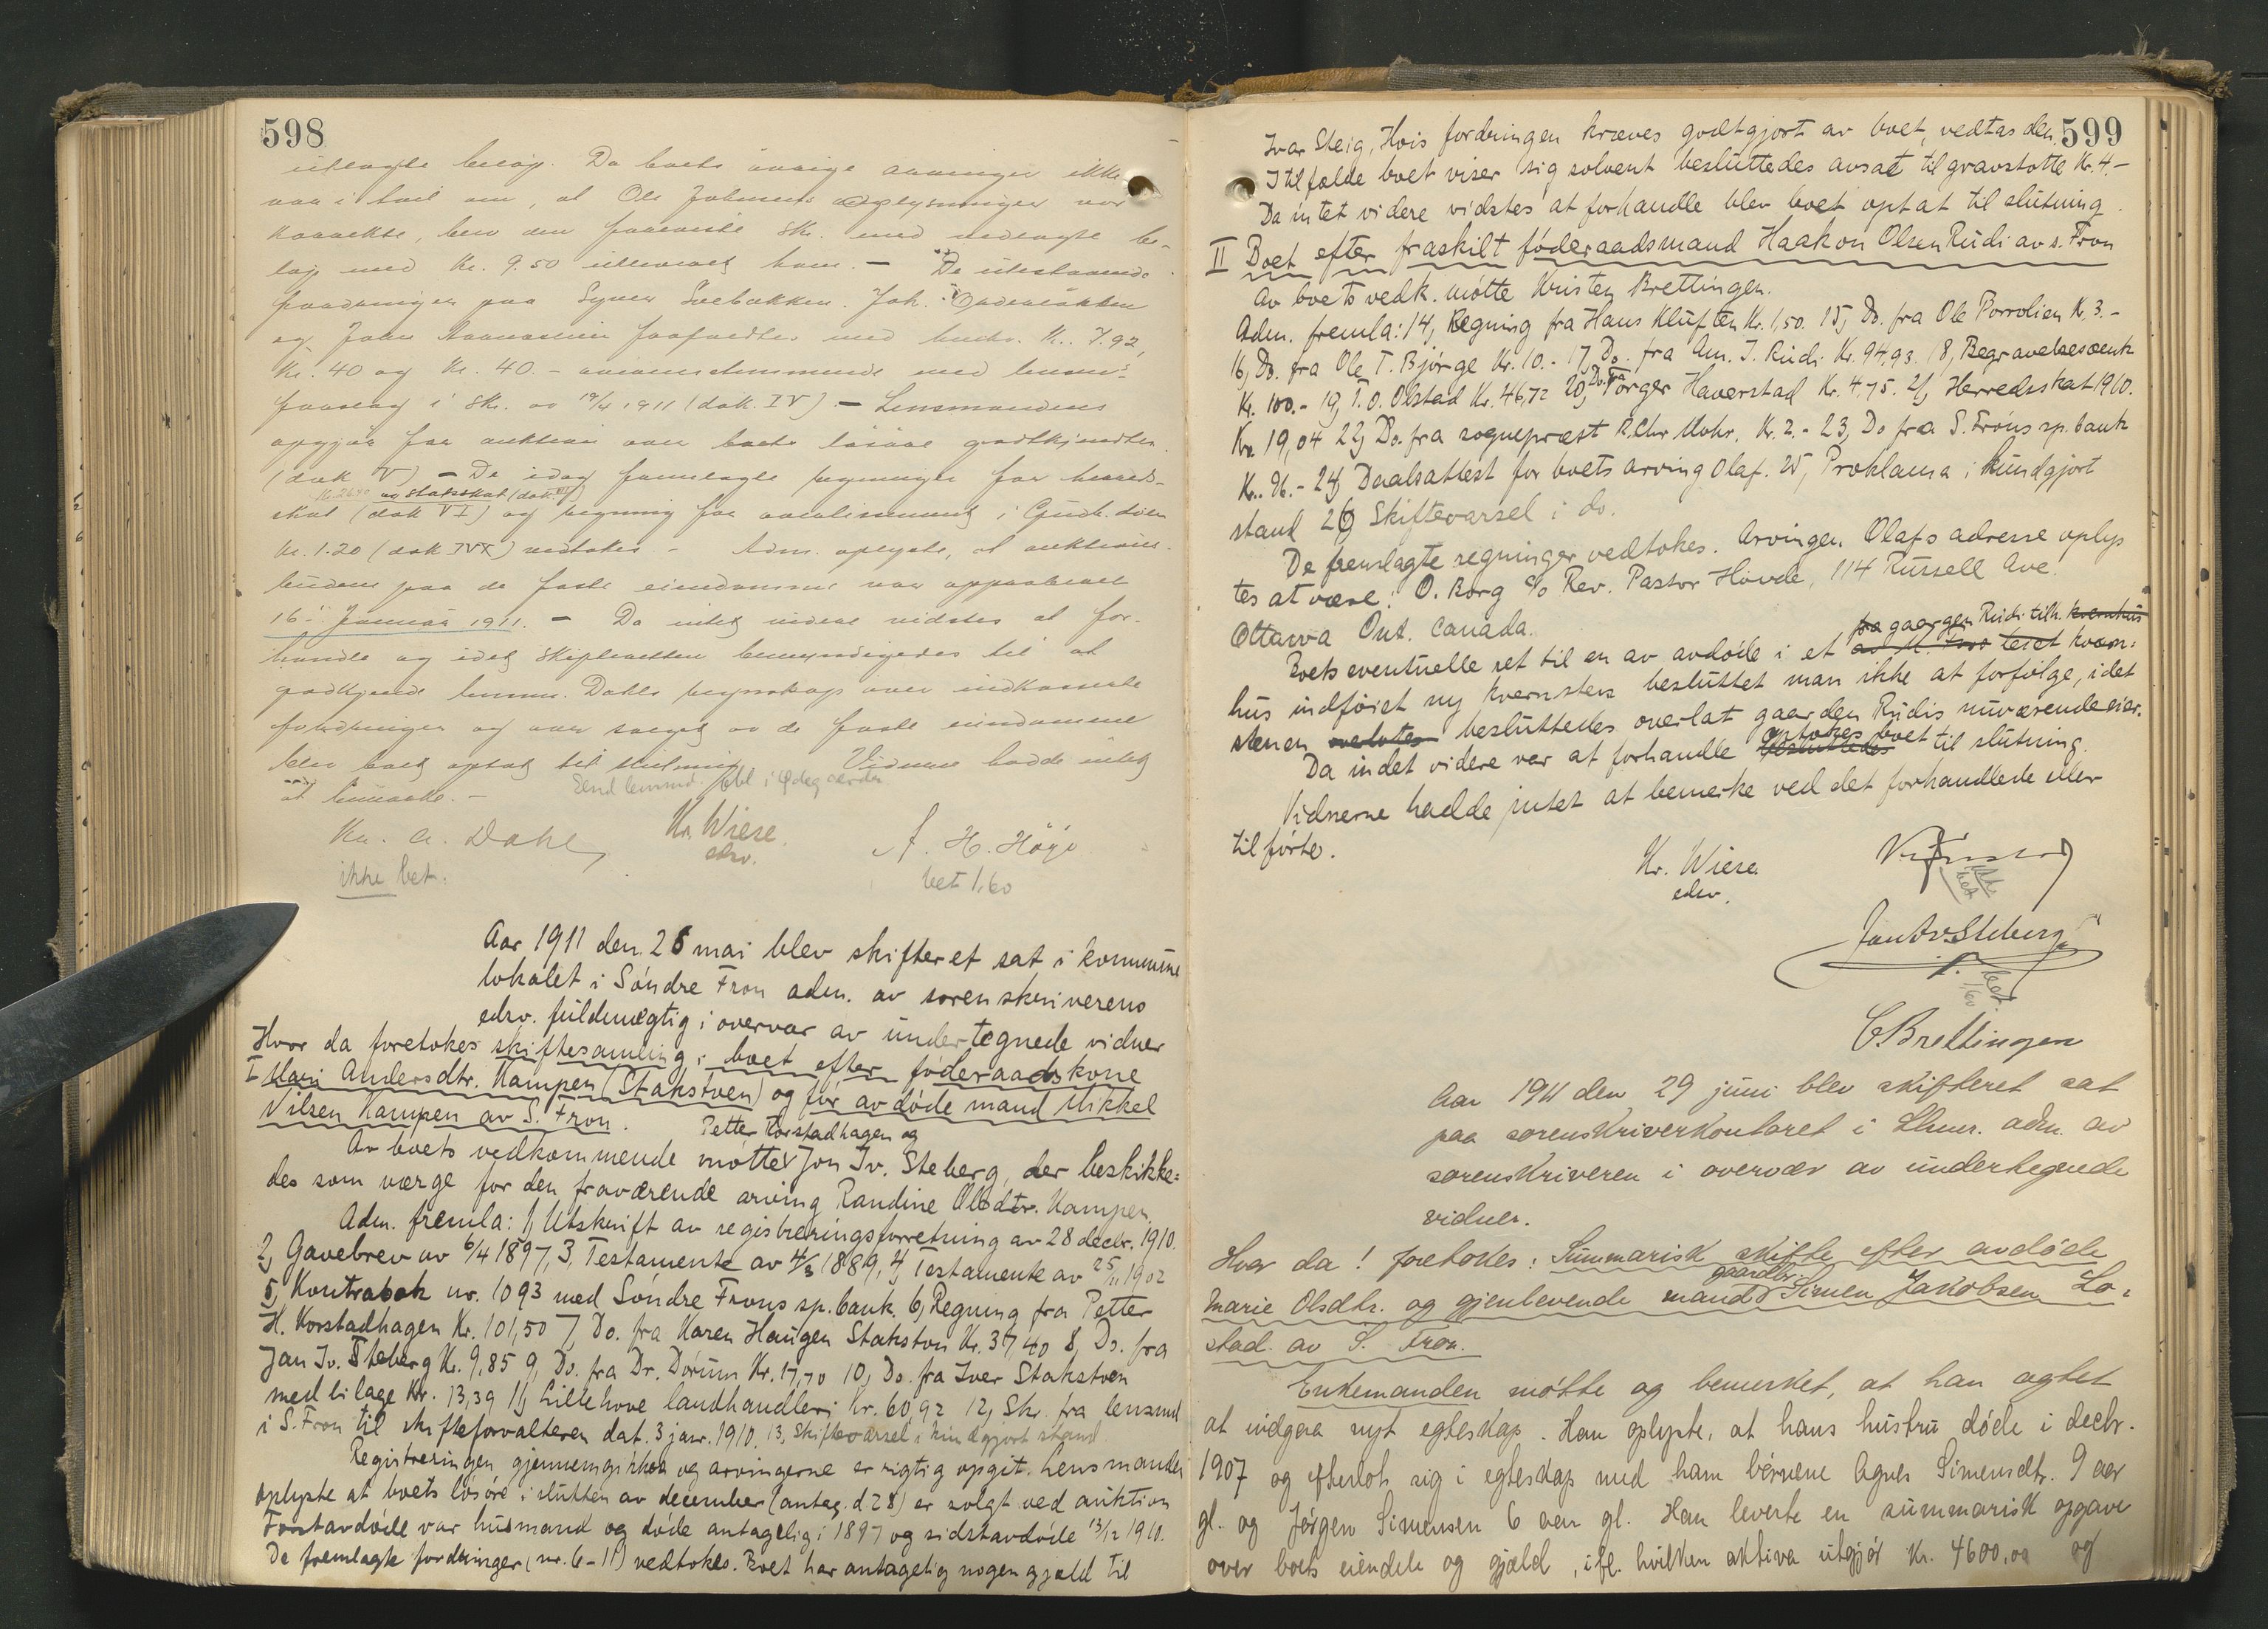 598
utlagte beløp. Da boets øvrige arvinger ikke
var i tvil om, at Ole Johnsens oplysninger var
korrekte, blev den foreviste Skr. med vedlagte be-
løp med Kr. 9.50 utleveret ham. - De utestaaende
fordringer paa Syver Svebakken, Joh.
og Jon forfordres med henhv. Kr. 7.92,
Kr. 40 og Kr. 40.- overensstemmende med lensm.s
forslag i Skr. av 19/4 1911 (dok. IV). - Lensmandens
opgjør for auktion over boets løsøre godkjendtes
(dok V) - De idag fremlagte regninger for herreds-
Kr. 26.40 og statsskat (dok. VII)
skat (dok VI) og regning for avertissement i Gudb.dølen
Kr. 1.20 (dok IVX) vedtokes. - Adm. oplyste, at auktions-
budene paa de faste eiendomme var approberet
16de Januar 1911. - Da intet videre vidstes at for-
handle og idet skifteretten bemyndigedes til at
godkjende lensm. Dahls regnskap over indkasserte
fordringer og over salget av de faste eiendomme
blev boet optat til slutning. Vidnene hadde intet
at bemerke. - Send lensmd. i Ødegaarden
Kr. A. Dahl Kr. Wiese A. H. Höge
edsv.
ikke bet. bet 1,60
Aar 1911 den 26 mai blev skifteret sat i kommune
lokalet i Søndre Fron adm. av sorenskriverens
edsv. fuldmægtig i overvær av undertegnede vidner
Hvor da foretokes skiftesamling i boet efter føderaadskone
I Mari Andersdtr. Kampen (Stakstven) og før avdøde mand Mikkel
Nilsen Kampen av S. Fron.
Petter Korstadhagen og
Av boets vedkommende møtte Jon Iv. Steberg, der beskikke=
des som værge for den fraværende arving Randine Olsdtr. Kampen.
Adm. fremla: 1, Utskrift av registreringsforretning av 28 decbr. 1910.
2, Gavebrev av 6/4 1897, 3, Testamente av 4/3 1889, 4, Testamente av 25/11 1902
5, Kontrabok nr. 1093 med Søndre Frons sp.bank. 6, Regning fra Petter
H. Korstadhagen Kr. 101,50 7, Do. fra Karen Haugen Stakston Kr. 37 40 8, Do. fra
Jon Iv. Steberg Kr. 9,85 9, Do. fra Dr. Dørum Kr. 17,70 10, Do. fra Iver Stakstven
med bilage Kr. 13,39 11, Lillehove landhandleri Kr. 60,92 12, Skr. fra lensmd
i S. Fron til skifteforvalteren dat. 3 janr. 1910. 13, Skiftevarsel i kundgjort stand.
Registreringen gjennemgikkes og arvingerne er rigtig opgit. Lensmanden
oplyste at boets løsøre i slutten av december (antag. d 28) er solgt ved auktion
Førstavdøde var husmand og døde antagelig i 1897 og sidstavdøde 13/12 1910.
De fremlagte fordringer (nr. 6-11) vedtokes. Boet har antagelig nogen gjæld til
599
Ivar Steig. Hvis fordringen kræves godtgjort av boet, vedtas den.
I tilfælde boet viser sig solvent besluttedes avsat til gravstøtte Kr. 4-
Da intet videre vidstes at forhandle blev boet optat til slutning.
II Boet efter fraskilt føderaadsmand Haakon Olsen Rudi av S. Fron
Av boets vedk. møtte Kristen Brettingen.
Adm. fremla: 14, Regning fra Hans Kluften Kr. 1,50. 15, Do. fra Ole Porrolien Kr. 3.-
16, Do. fra Ole T. Bjørge Kr. 10.- 17, Do. fra Am. J. Rudi Kr. 94,93. 18, Begravelsesomk
Kr. 100.- 19, T. O. Olstad Kr. 46,72 20, Do. fra Torger Haverstad Kr. 4,75. 21, Herredsskat 1910.
Kr. 19,04 22, Do. fra sogneprest R. Chr. Mohr. Kr. 2.- 23, Do fra S. Frons sp.bank
Kr. 96.- 24, Daabsattest for boets arving Olaf. 25, Proklama i kundgjort
stand 26, Skiftevarsel i do.
De fremlagte regninger vedtokes. Arvingen Olafs adresse oplys
tes at være: O. Borg c/o Rev. Pastor Hovde, 114 Russell Ave.
Ottawa Ont. Canada.
fra gaarden Rudi tilh. kvernhus
Boets eventuelle ret til en av avdøde i et av leiet kvern:
hus indføiet ny kvernsten besluttet man ikke at forfølge, idet
stenen overlates besluttedes overlat gaarden Rudis nuværende eier.
Da indet videre var at forhandle besluttedes optokes boet til slutning.
Vidnerne hadde intet at bemerke ved det forhandlede eller
tilførte.
Kr. Wiese
edsv.
ikke bet
Jon Iv. Steberg
bet 1,60
C. Brettingen
Aar 1911 den 29 juni blev skifteret sat
paa sorenskriverkontoret i Lhmr. adm. av
sorenskriveren i overvær av undertegnede
vidner.
Hvor da! foretokes: Summarisk skifte efter avdøde
gaardbr.
Marie Olsdtr. og gjenlevende mand Simen Jakobsen Lo=
stad av S. Fron.
Enkemanden møtte og bemerket, at han agtet
at indgaa nyt egteskap. Han oplyste, at hans hustru døde i decbr.
1907 og efterlot sig i egteskap med ham børnene Agnes Simensdtr. 9 aar
gl. og Jørgen Simensen 6 aar gl. Han leverte en summarisk opgave
over boets eiendele og gjæld, ifl. hvilken aktiva utgjør Kr. 4600,00 og